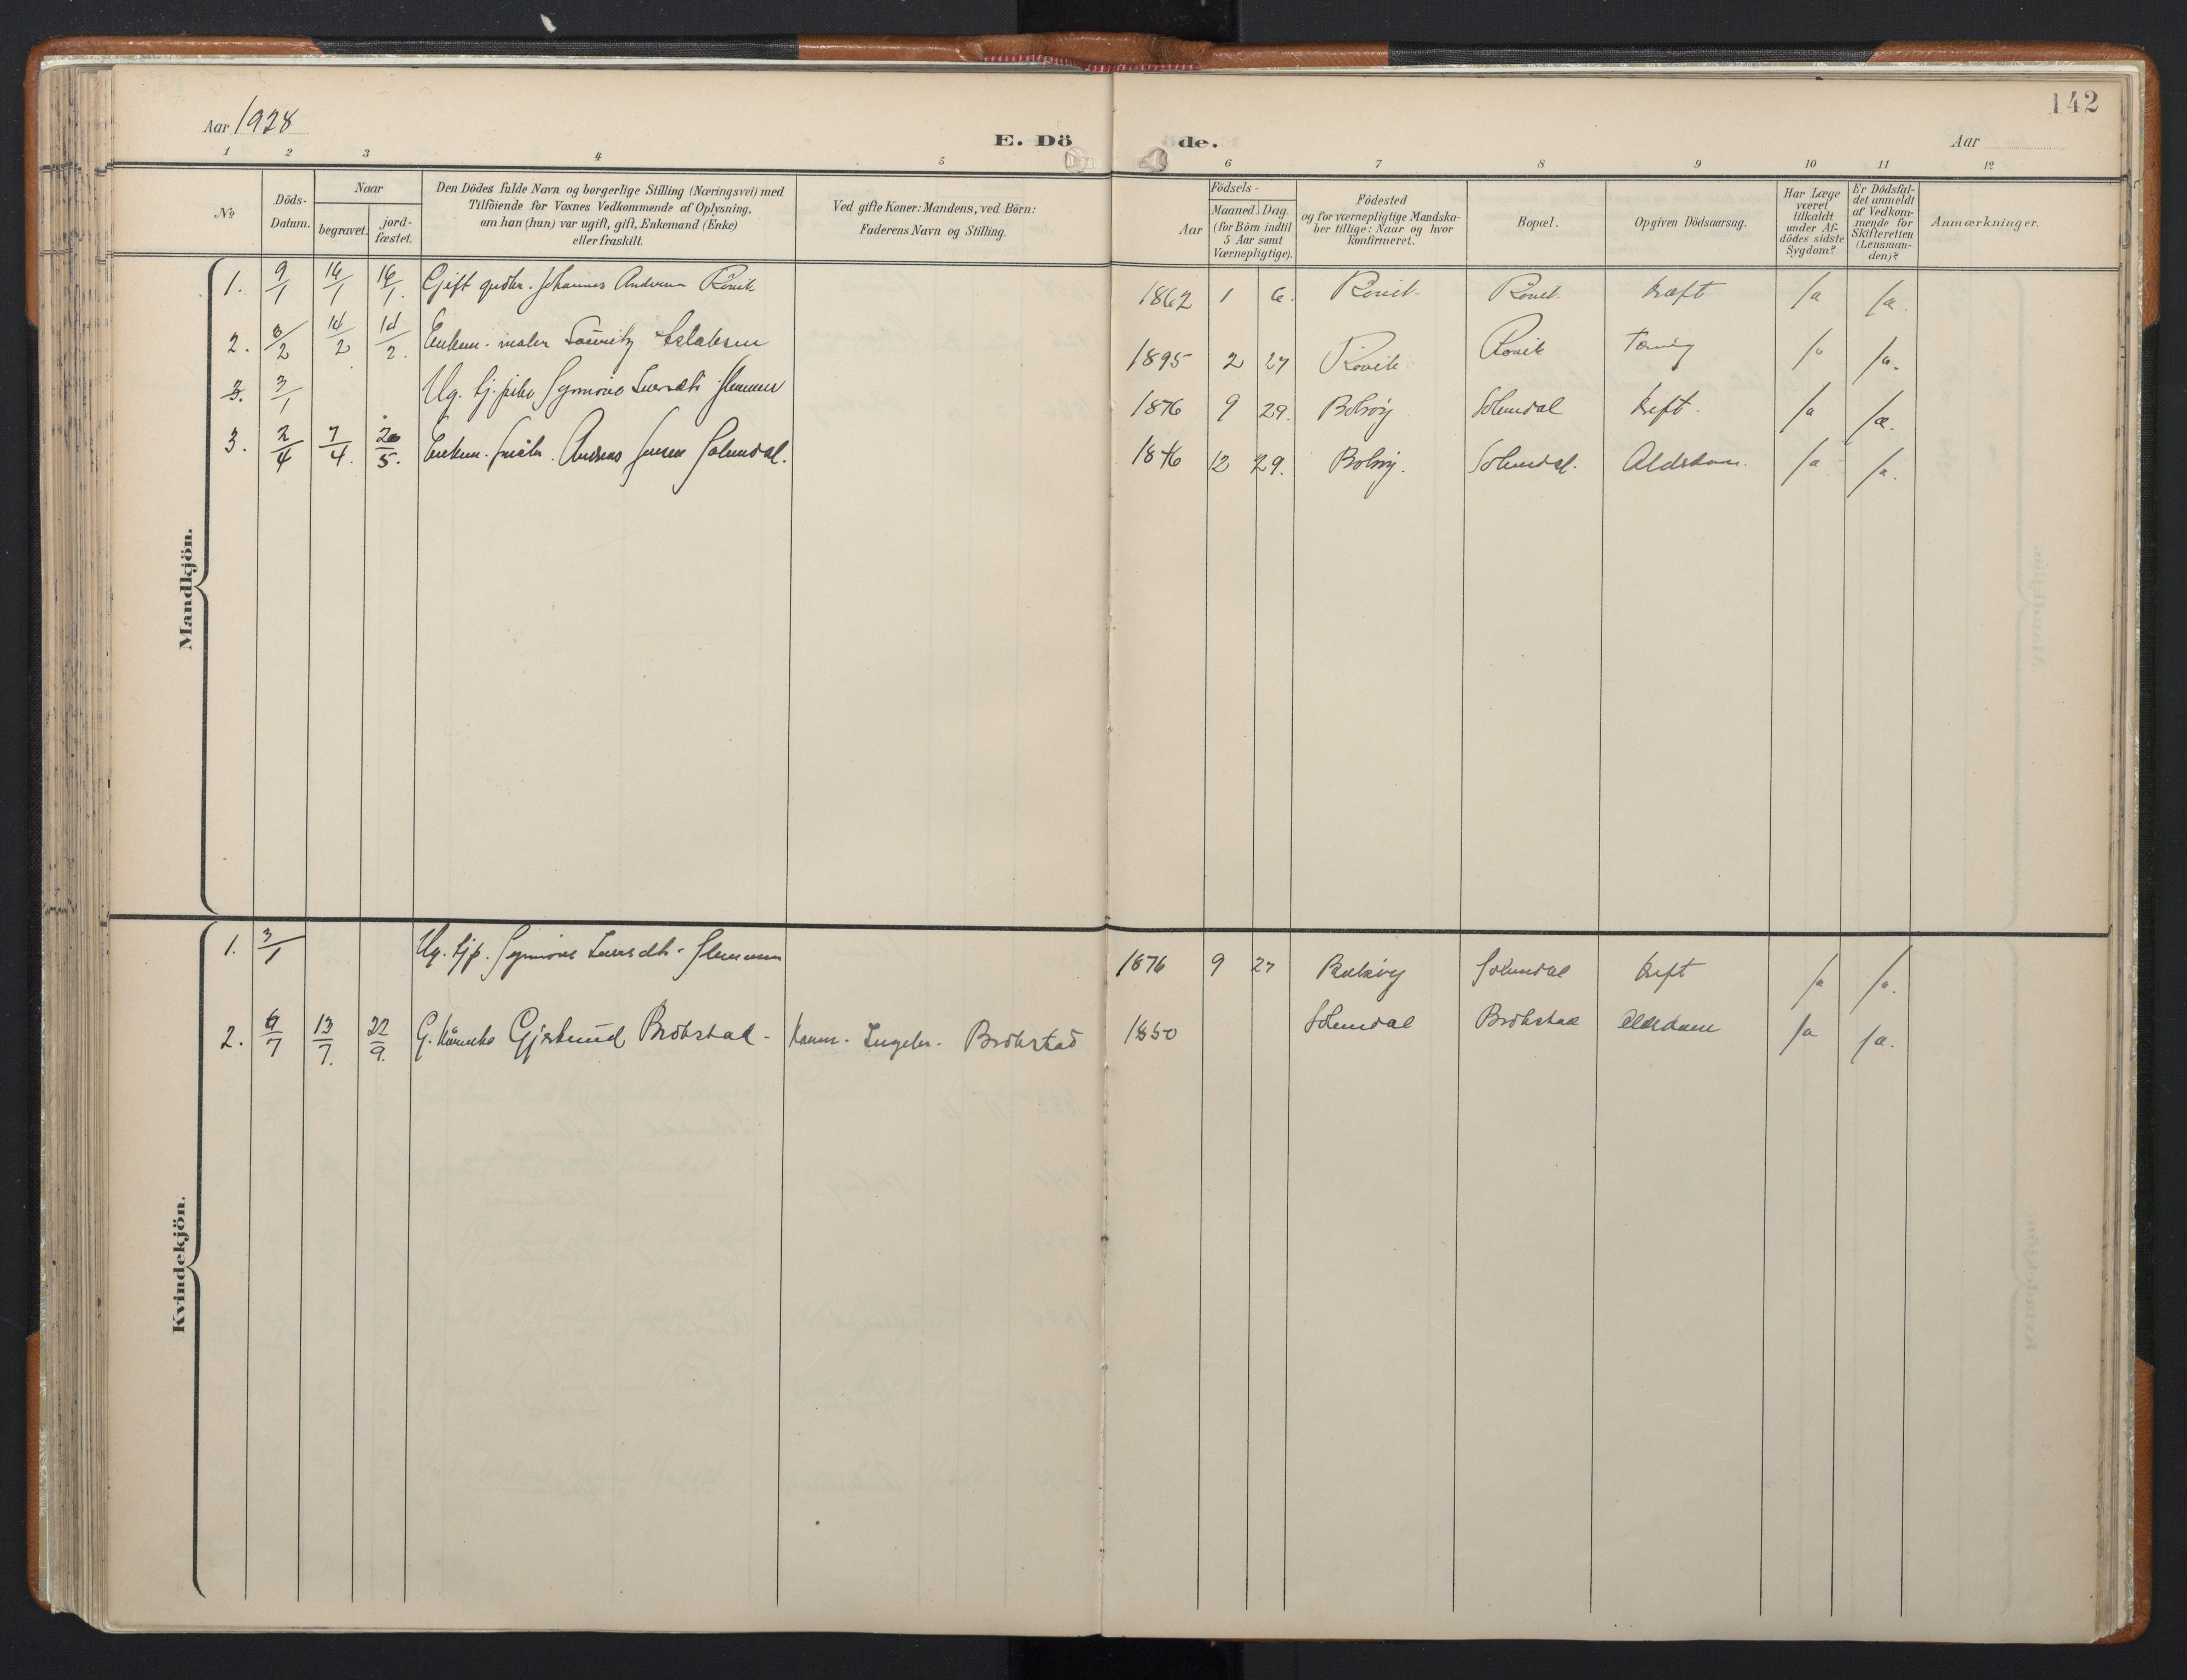 142
Aar 1928
E. Dö de.
Aar
1 2 3 4 5 6 7 8 9 10 11 12
No
Döds-Datum.
Naar
begravet.
jord-fæstet.
Den Dödes fulde Navn og borgerlige Stilling (Næringsvei) med
Tilföiende for Voxnes Vedkommende af Oplysning,
om han (hun) var ugift, gift, Enkemand (Enke)
eller fraskilt.
Ved gifte Koner: Mandens, ved Börn:
Faderens Navn og Stilling.
Aar
Födsels-
Maaned. Dag.
(for Börn indtil
5 Aar samt
Værnepligtige).
Födested
og for værnepligtige Mandska-
ber tillige: Naar og hvor
Konfirmeret.
Bopæl.
Opgiven Dödsaarsag.
Har Læge
været
tilkaldt
under Af-
dödes sidste
Sygdom?
Er Dödsfal-
det anmeldt
af Vedkom-
mende for
Skifteretten
(Lensman-
den)?
Anmærkninger.
Mandkjön.
1. 9/1 14/1 16/1. Gift Johannes Andersen Rövik 1862 1 6. Rövik Rövik kræft Ja Ja.
2. 3/2 14/2 14/2. Enkem. maler 1895 2 27 Rövik Rövik Tæring Ja Ja.
3. 3/1 Ug. tj. pike Synnöve 1876 9 29. Bolsöy Solemdal kreft. Ja Ja.
3. 2/4 7/4. 20/5. Enkem. Andreas Jensen Solemdal. 1846 12 29. Bolsöy. Solemdal. Aldersdom. Ja Ja.
Kvindekjön.
1. 3/1 Ug. tjp. Synnöve 1876 9 27 Bolsöy Solemdal kreft Ja Ja.
2. 6/7 13/7. 22/9. G. Gjertrud Brökstad - Ingebr. Brökstad 1850 Solemdal Brökstad Alderdom Ja Ja.